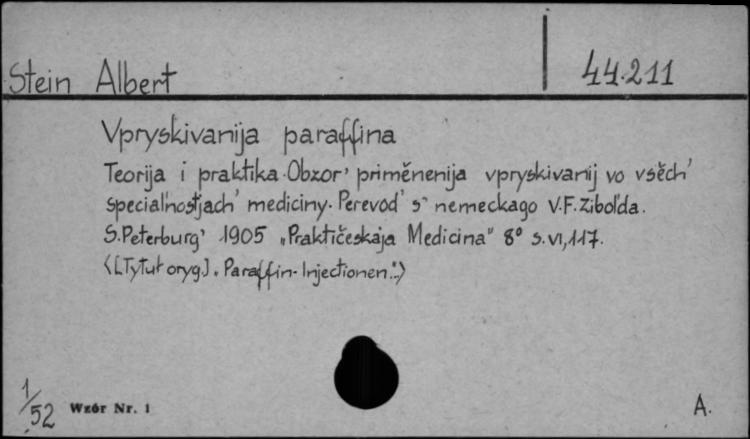 Stein Albert
44.211
Vpryskivanija paraffina
Teorija i praktika. Obzor' priměnenija vpryskivanij vo vsěch'
special'nostjach' mediciny. Perevod' s' nemeckago V.F. Zibol'da.
S. Peterburg' 1905 „Praktičeskaja Medicina" 8° s. VI, 117.
([Tytuł oryg.]. Paraffin-Injectionen".)
1/52
Wzór Nr. 1
A.